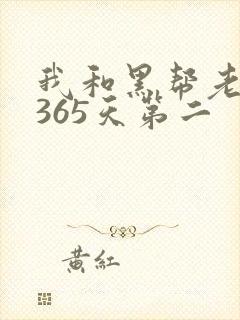 我和黑帮老
365天第二
黄红